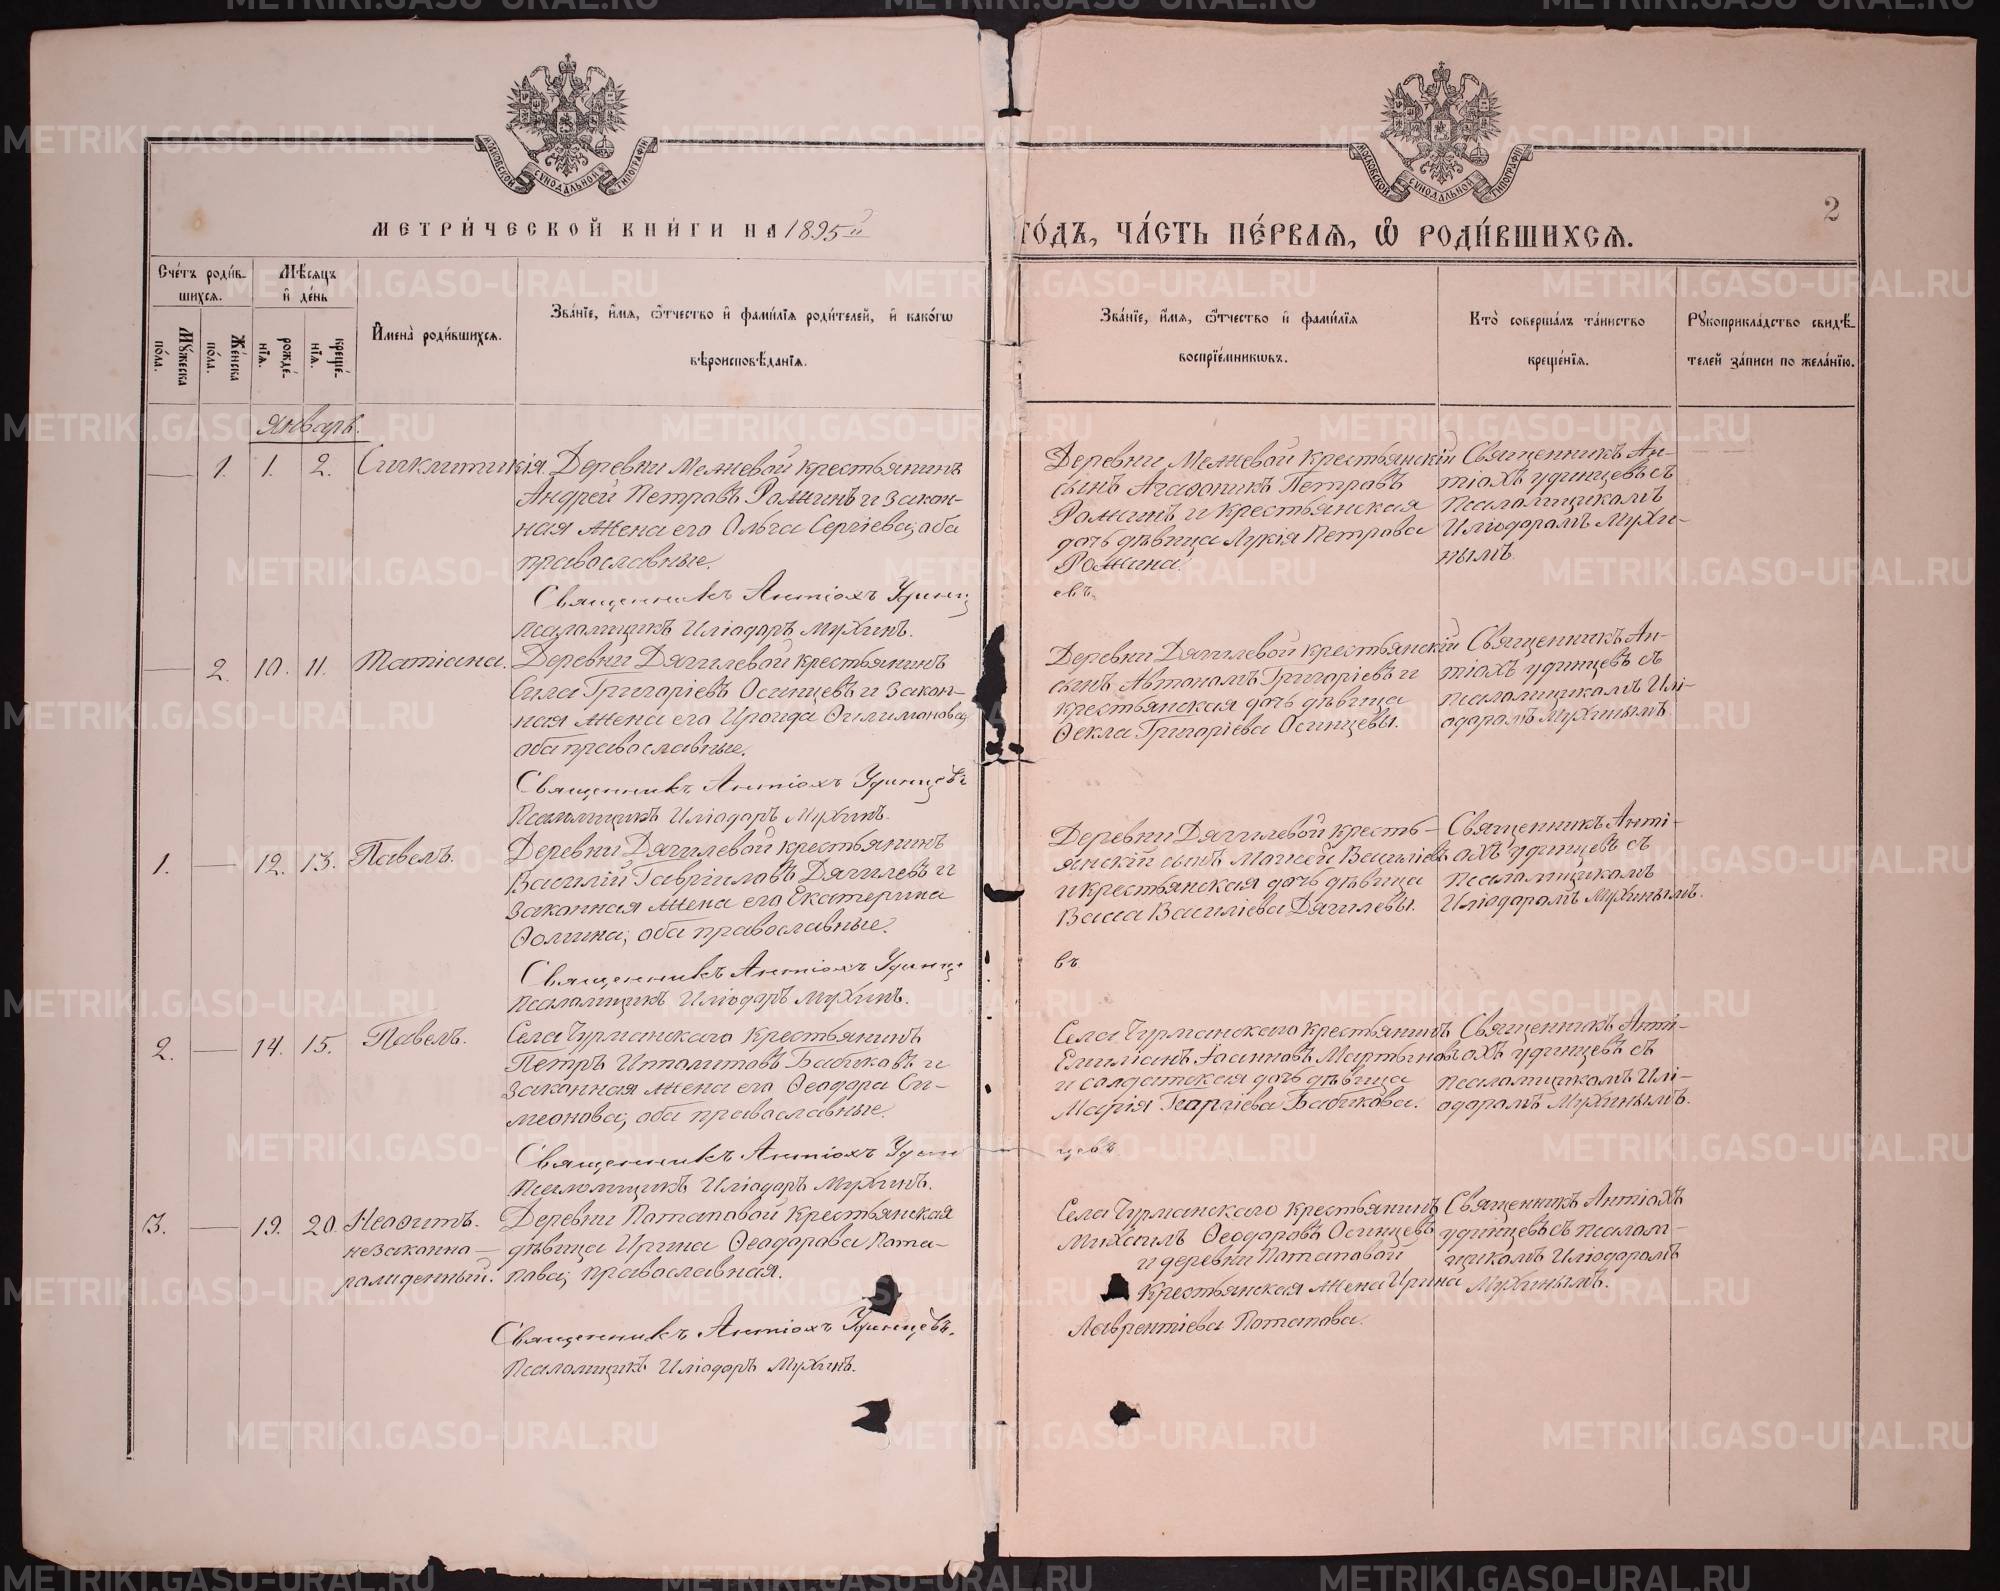 МОСКОВСКОЙ СУНОДАЛЬНОЙ ТИПОГРАФІИ
МОСКОВСКОЙ СУНОДАЛЬНОЙ ТИПОГРАФІИ
2
МЕТРИ́ЧЕСКОЙ КНИ́ГИ НА 1895й
ГО́ДЪ, ЧА́СТЬ ПЕ́РВАЯ, Ѡ РОДИ́ВШИХСЯ.
Сче́тъ роди́в-
шихся.
Мѣсяцъ
и де́нь
Мꙋжеска по́ла.
Же́нска по́ла.
рожде́нїя.
креще́нїя.
Имена̀ роди́вшихся.
Зва́нїе, и́мя, ѻ҆́тчество и фами́лїя роди́телей, и како́гѡ
вѣроисповѣ́данїя.
Зва́нїе, и́мя, ѻ҆́тчество и фами́лїя
воспрїе́мникѡвъ.
Кто̀ соверша́лъ та́инство
креще́нїя.
Рꙋкоприкла́дство свидѣ́-
телей за́писи по жела́нїю.
Январь.
1. 1. 2. Синклитикія.
Деревни Межевой крестьянинъ
Андрей Петровъ Рожинъ и закон-
ная жена его Ольга Сергіева, оба
православные.
Священникъ Антіохъ Удинц
Псаломщикъ Иліодоръ Мухинъ.
Деревни Межевой крестьянскій
сынъ Агафоникъ Петровъ
Рожинъ и крестьянская
дочь дѣвица Лукія Петрова
Рожина.
евъ.
Священникъ Ан-
тіохъ Удинцевъ съ
псаломщикомъ
Иліодоромъ Мухи-
нымъ.
2. 10. 11. Татіана.
Деревни Дягилевой крестьянинъ
Сила Григоріевъ Осинцевъ и закон-
ная жена его Ираида Филимонова,
оба православные.
Священникъ Антіохъ Удинцевъ
Псаломщикъ Иліодоръ Мухинъ.
Деревни Дягилевой крестьянскій
сынъ Автономъ Григоріевъ и
крестьянская дочь дѣвица
Ѳекла Григоріева Осинцевы.
Священникъ Ан-
тіохъ Удинцевъ съ
псаломщикомъ Илі-
одоромъ Мухинымъ.
1. 12. 13. Павелъ.
Деревни Дягилевой крестьянинъ
Василій Гавріиловъ Дягилевъ и
законная жена его Екатерина
Ѳомина, оба православные.
Священникъ Антіохъ Удинце
Псаломщикъ Иліодоръ Мухинъ.
Деревни Дягилевой кресть-
янскій сынъ Моисей Василіевъ
и крестьянская дочь дѣвица
Васса Василіева Дягилевы.
въ
Священникъ Анті-
охъ Удинцевъ съ
псаломщикомъ
Иліодоромъ Мухинымъ.
2. 14. 15. Павелъ.
Села Чурманскаго крестьянинъ
Петръ Ипполитовъ Бабиковъ и
законная жена его Ѳеодора Си-
меонова, оба православные.
Священникъ Антіохъ Удин
Псаломщикъ Иліодоръ Мухинъ.
Села Чурманскаго крестьянинъ
Емиліанъ Іоанновъ Мартыновъ
и солдатская дочь дѣвица
Марія Георгіева Бабикова.
цевъ
Священникъ Анті-
охъ Удинцевъ съ
псаломщикомъ Илі-
одоромъ Мухинымъ.
3. 19. 20. Неофитъ.
незаконно-
рожденный.
Деревни Потаповой крестьянская
дѣвица Ирина Ѳеодорова Пота-
пова, православная.
Священникъ Антіохъ Удинцевъ.
Псаломщикъ Иліодоръ Мухинъ.
Села Чурманскаго крестьянинъ
Михаилъ Ѳеодоровъ Осинцевъ
и деревни Потаповой
крестьянская жена Ирина
Лаврентіева Потапова.
Священникъ Антіохъ
Удинцевъ съ псалом-
щикомъ Иліодоромъ
Мухинымъ.
METRIKI.GASO-URAL.RU